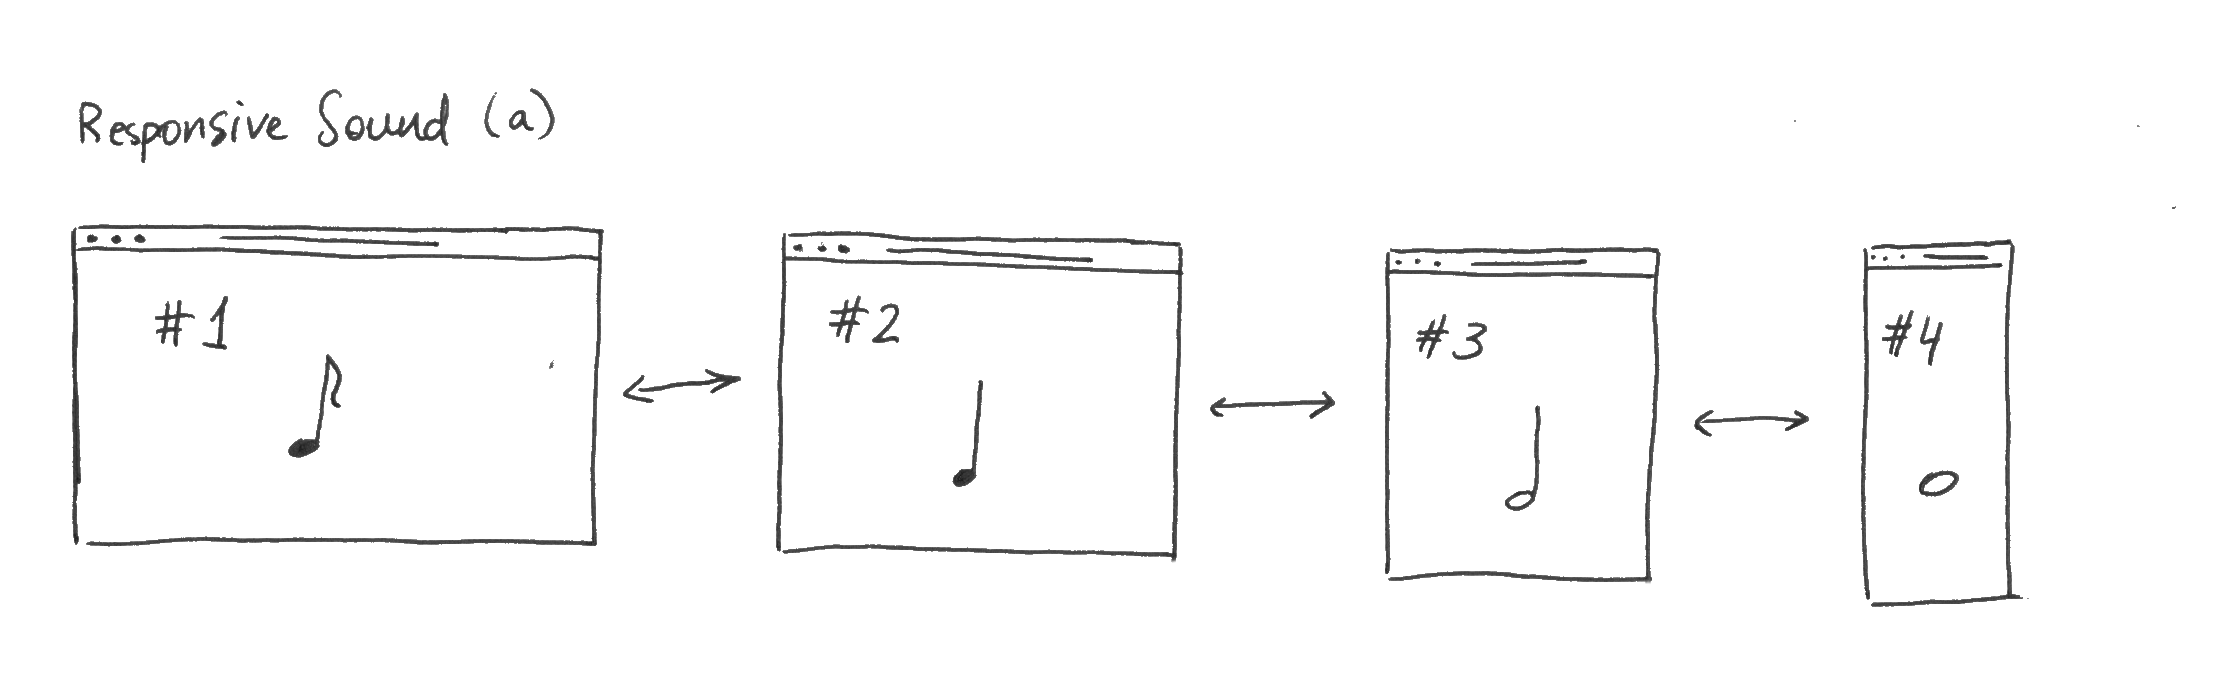 Responsive Sound (a)
#1
#2
#3
#4